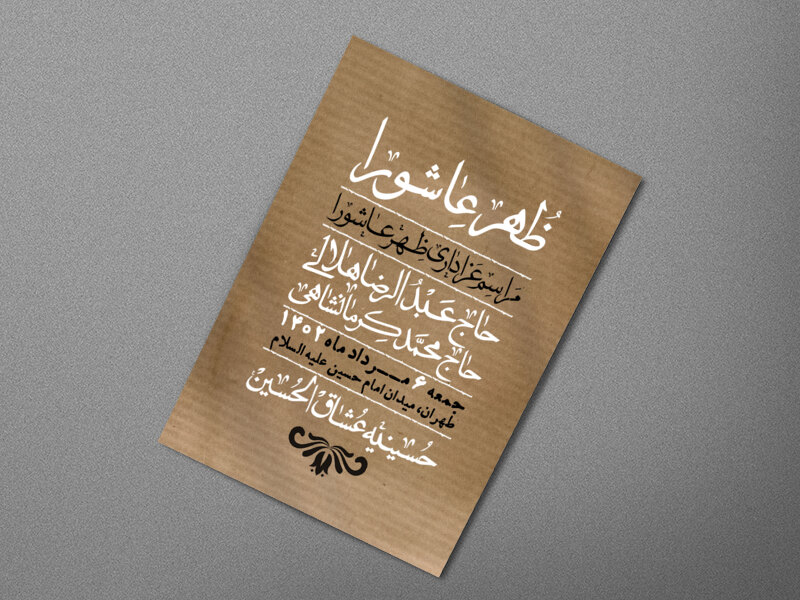 ظُهر عاشورا
مراسم عزاداری ظهر عاشورا
حاج عبدالرضا هلالی
حاج محمّد کرمانشاهی
جمعه ۶ مرداد ماه ۱۴۰۲
طهران، میدان امام حسین علیه السلام
حسینیه عشاق الحسین